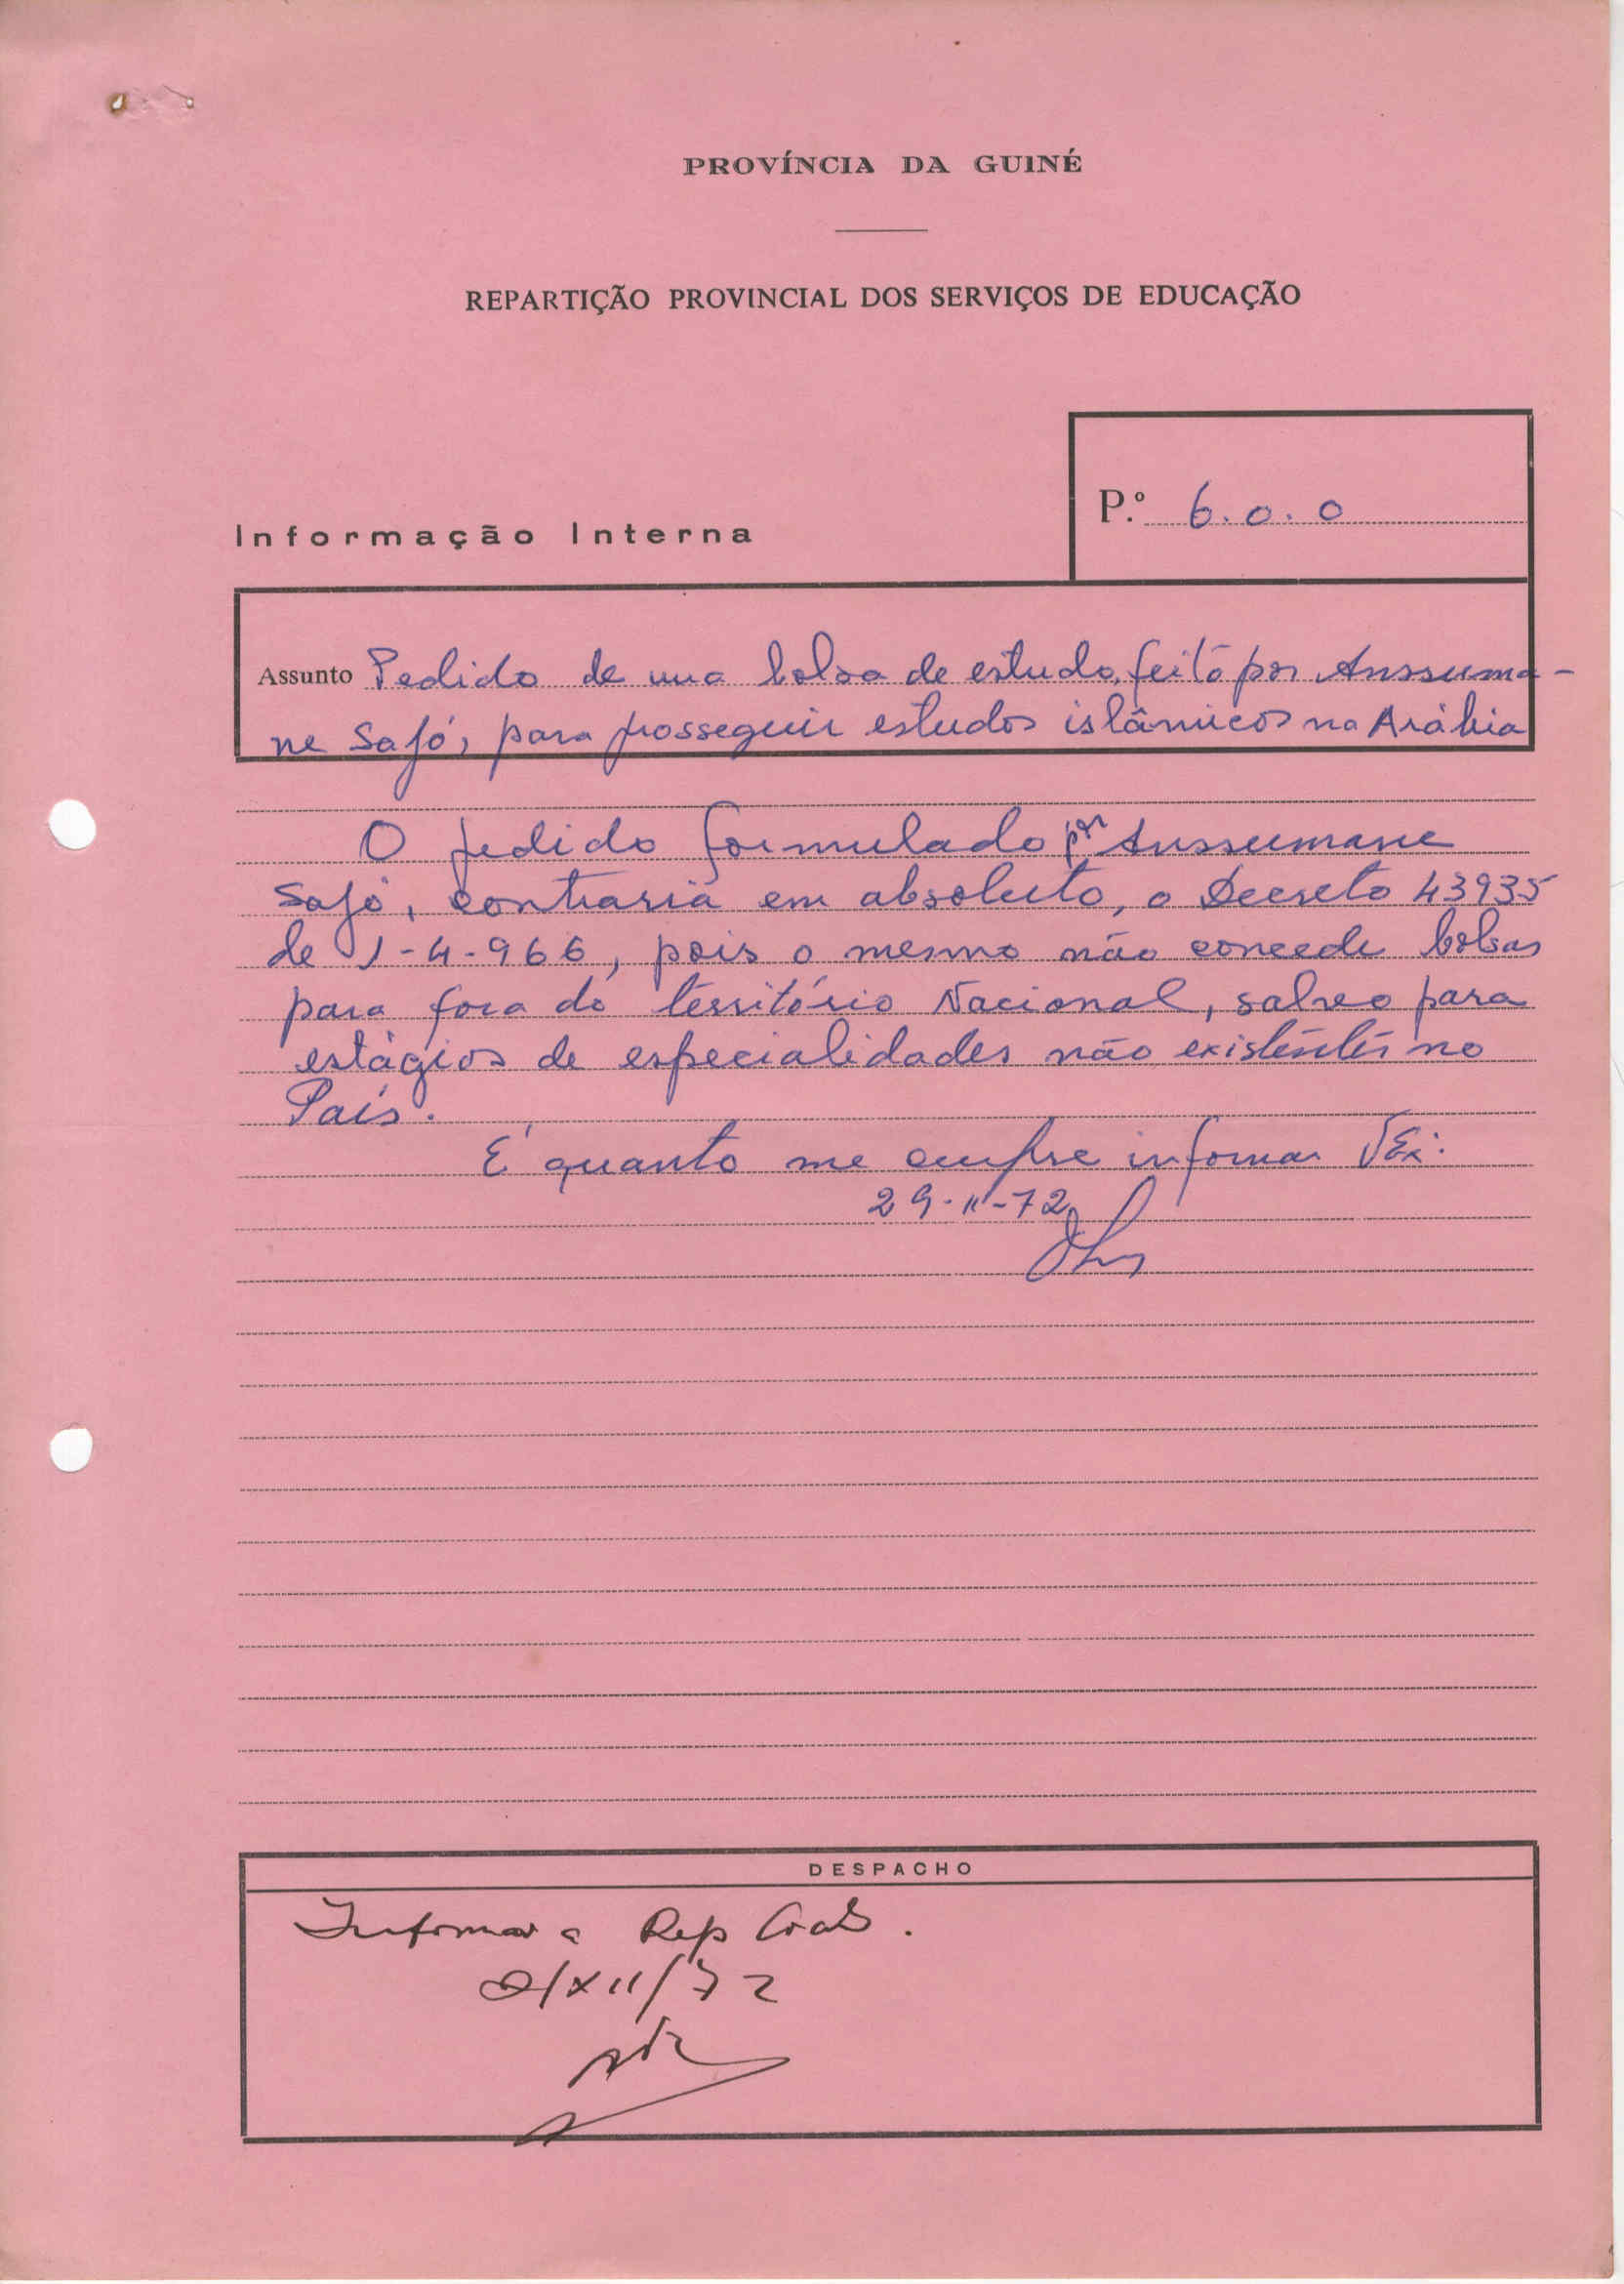 PROVÍNCIA DA GUINÉ
REPARTIÇÃO PROVINCIAL DOS SERVIÇOS DE EDUCAÇÃO
P.º 6.0.0
Informação Interna
Assunto Pedido de uma bolsa de estudo, feito por Anssuma-
ne Sajó, para prosseguir estudos islâmicos na Arábia
O pedido formulado por Anssumane
Sajó, contraria em absoluto, o Decreto 43935
de 1-4-966, pois o mesmo não concede bolsas
para fora do território Nacional, salvo para
estágios de especialidades não existentes no
País.
É quanto me cumpre informar VEx:
29-11-72
DESPACHO
Informar a Rep
2/XII/72